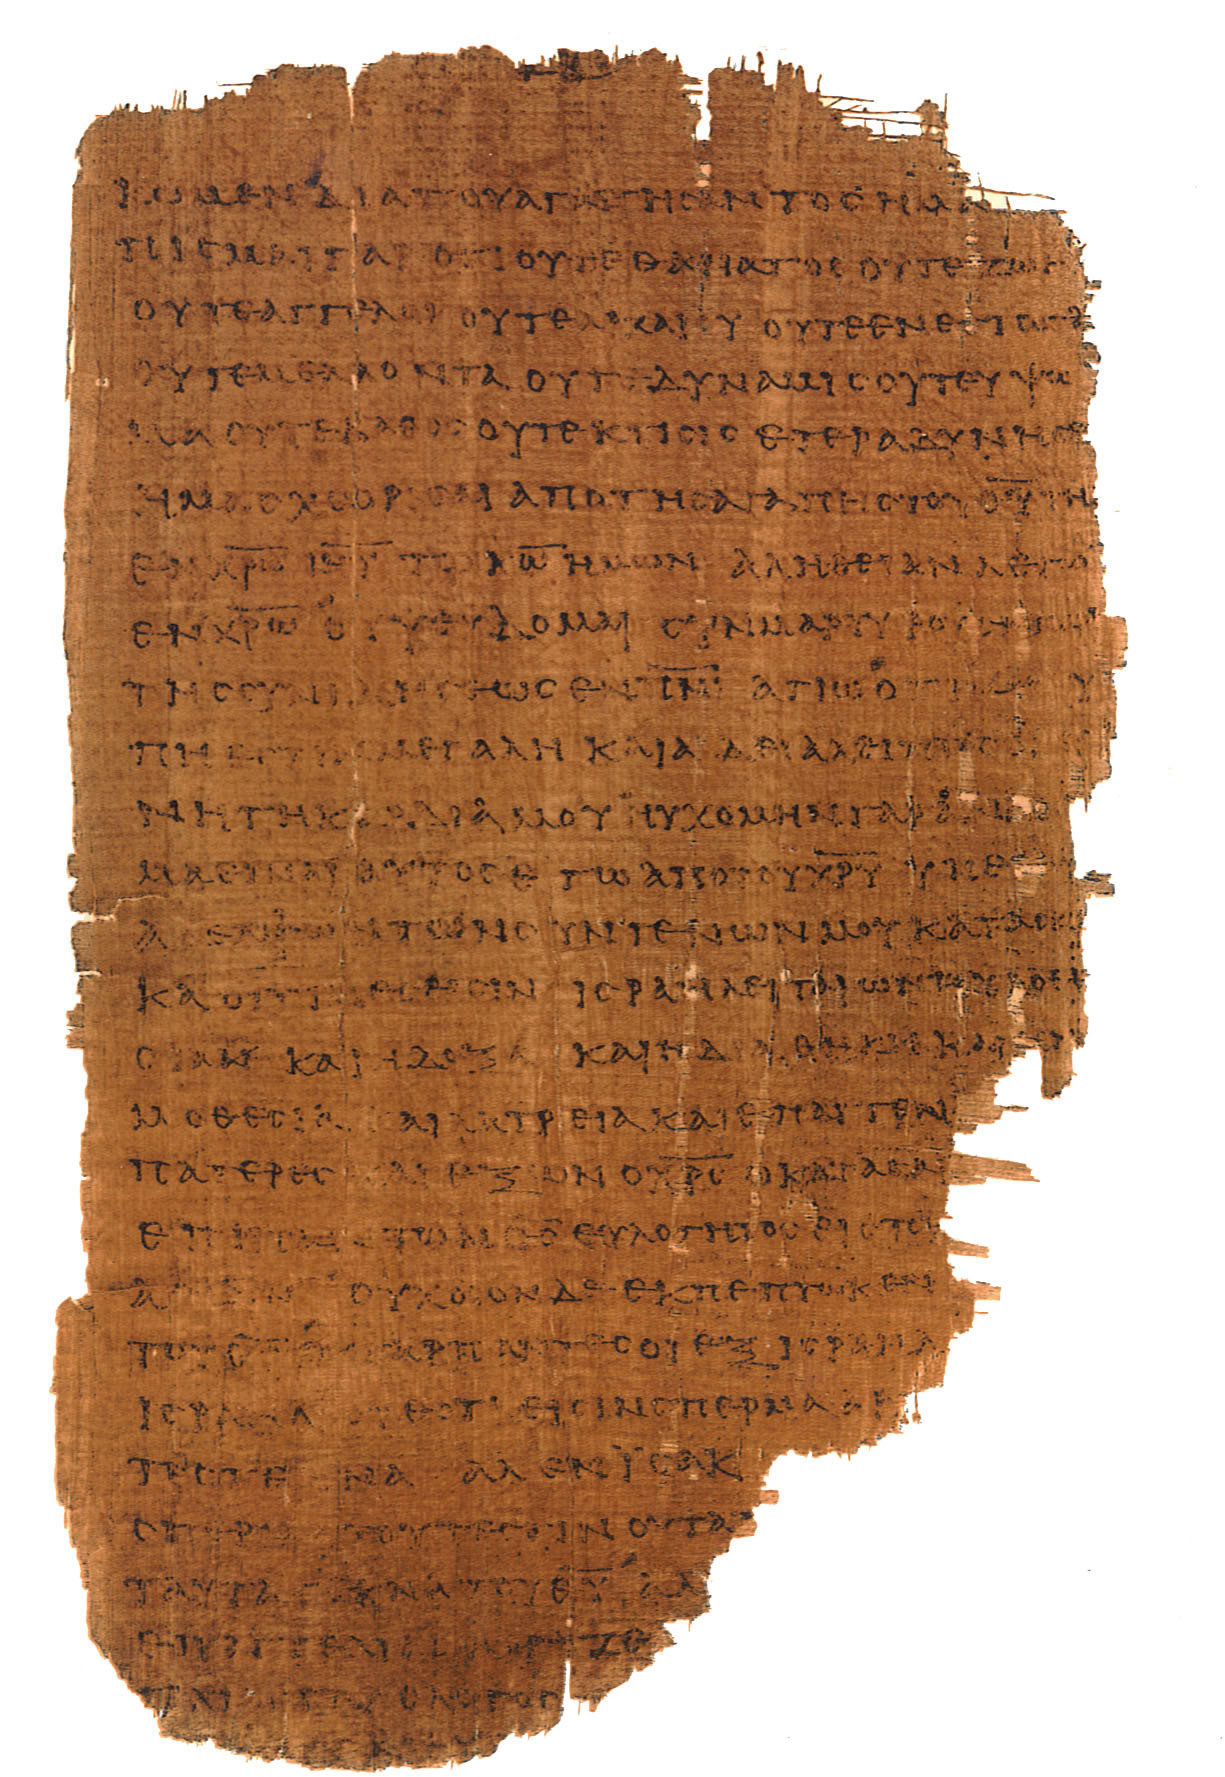 ΚΩΜΕΝ ΔΙΑ ΤΟΥ ΑΓΑΠΗϹΑΝΤΟϹ ΗΜΑ
ΠΙϹΜΑΙ ΓΑΡ ΟΤΙ ΟΥΤΕ ΘΑΝΑΤΟϹ ΟΥΤΕ ΖΩΗ
ΟΥΤΕ ΑΓΓΕΛΟΙ ΟΥΤΕ ΑΡΧΑΙ ΟΥΤΕ ΕΝΕϹΤΩΤΑ
ΟΥΤΕ ΜΕΛΛΟΝΤΑ ΟΥΤΕ ΔΥΝΑΜΙϹ ΟΥΤΕ ΥΨΩ
ΜΑ ΟΥΤΕ ΒΑΘΟϹ ΟΥΤΕ ΚΤΙϹΙϹ ΕΤΕΡΑ ΔΥΝΗϹΕ
ΗΜΑϹ ΧΩΡΙϹΑΙ ΑΠΟ ΤΗϹ ΑΓΑΠΗϹ ΤΟΥ Θ̅Υ̅ ΤΗ
ΕΝ Χ̅Ρ̅Ω̅ Ι̅Η̅Υ̅ ΤΩ Κ̅Ω̅ ΗΜΩΝ ΑΛΗΘΕΙΑΝ ΛΕΓΩ
ΕΝ Χ̅Ρ̅Ω̅ ΟΥ ΨΕΥΔΟΜΑΙ ϹΥΝΜΑΡΤΥΡΟΥϹΗϹ ΜΟΙ
ΤΗϹ ϹΥΝΙΔΗϹΕΩϹ ΕΝ Π̅Ν̅Ι̅ ΑΓΙΩ ΟΤΙ
ΠΗ ΕϹΤΙΝ ΜΕΓΑΛΗ ΚΑΙ ΑΔΙΑΛΕΙΠΤΟϹ
ΝΗ ΤΗ ΚΑΡΔΙΑ ΜΟΥ ΗΥΧΟΜΗΝ ΓΑΡ
ΜΑ ΕΙΝΑΙ ΑΥΤΟϹ ΕΓΩ ΑΠΟ ΤΟΥ Χ̅Ρ̅Υ̅ ΥΠΕΡ
ΑΔΕΛΦΩΝ ΤΩΝ ϹΥΝΓΕΝΩΝ ΜΟΥ ΚΑΤΑ
ΚΑ ΟΙΤΙΝΕϹ ΕΙϹΙΝ ΙϹΡΑΗΛΕΙΤΑΙ ΩΝ Η ΥΙΟΘΕ
ϹΙΑ ΚΑΙ Η ΔΟΞΑ ΚΑΙ Η ΔΙΑΘΗΚΗ ΚΑΙ Η
ΜΟΘΕϹΙΑ ΚΑΙ ΛΑΤΡΕΙΑ ΚΑΙ ΕΠΑΓΓΕΛ
ΠΑΤΕΡΕϹ ΚΑΙ ΕΞ ΩΝ Ο Χ̅Ρ̅Ϲ̅ Ο ΚΑΤΑ ϹΑ
ΕΠΙ ΠΑΝΤΩΝ Θ̅Ϲ̅ ΕΥΛΟΓΗΤΟϹ ΕΙϹ ΤΟΥ
ΑΜΗΝ ΟΥΧ ΟΙΟΝ ΔΕ ΕΚΠΕΠΤΩΚΕΝ
ΤΟΥ Θ̅Υ̅ ΟΥ ΓΑΡ ΠΑΝΤΕϹ ΟΙ ΕΞ ΙϹΡΑΗΛ
ΙϹΡΑΗΛ ΟΤΙ ΕΙϹΙΝ ϹΠΕΡΜΑ
ΑΛ ΕΝ ΙϹΑΚ
ϹΠΕΡΜΑ ΤΟΥΤΕϹΤΙΝ ΟΥ ΤΑ
ΤΑΥΤΑ ΤΕΚΝΑ ΤΟΥ Θ̅Υ̅ ΑΛ
ΕΠΑΓΓΕΛΙΑϹ
Ο ΛΟΓΟϹ